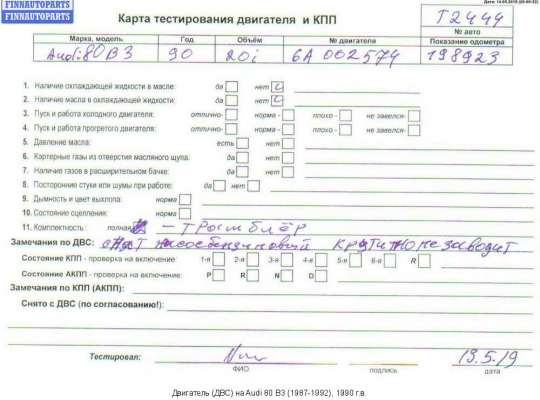 FINNAUTOPARTS
FINNAUTOPARTS
Карта тестирования двигателя и КПП
Т2444
№ авто
Марка, модель Год Объём № двигателя Показание одометра
Audi 80 B3 90 2.0i 6A 002574 198923
1. Наличие охлаждающей жидкости в масле: да нет
2. Наличие масла в охлаждающей жидкости: да нет
3. Пуск и работа холодного двигателя: отлично- норма - плохо - не завелся-
4. Пуск и работа прогретого двигателя: отлично- норма - плохо - не завелся-
5. Давление масла: есть нет
6. Картерные газы из отверстия масляного щупа: да нет
7. Наличие газов в расширительном бачке: да нет
8. Посторонние стуки или шумы при работе: да нет
9. Дымность и цвет выхлопа: норма
10. Состояние сцепления: норма
11. Комплектность: полная - трамблёр
Замечания по ДВС: снят насос бензиновый крутит но не заводит
Состояние КПП - проверка на включение: 1-я 2-я 3-я 4-я 5-я 6-я R
Состояние АКПП - проверка на включение: P R N D
Замечания по КПП (АКПП):
Снято с ДВС (по согласованию!):
Тестировал: 13.5.19
ФИО подпись дата
Двигатель (ДВС) на Audi 80 B3 (1987-1992), 1990 г.в.